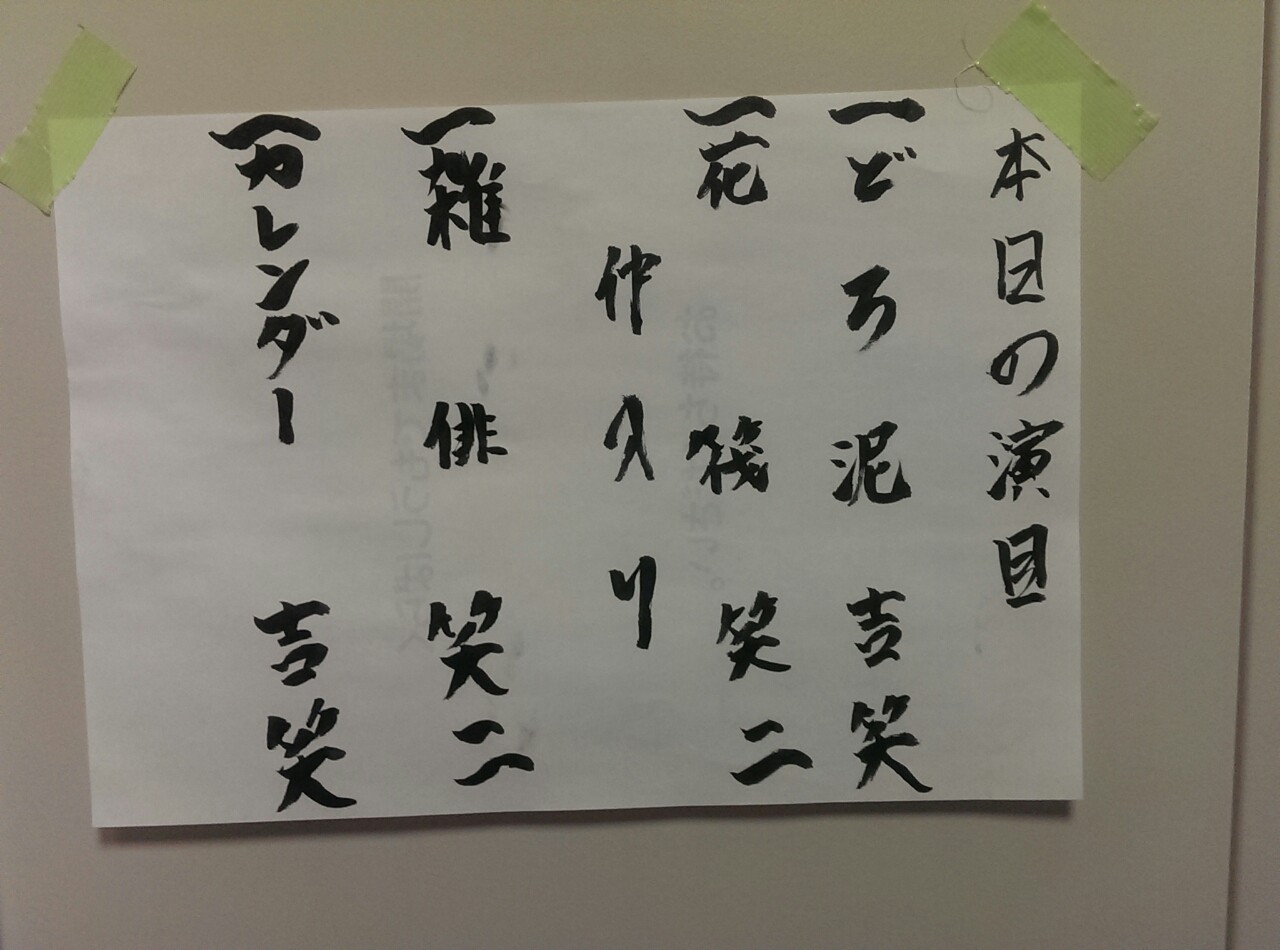 本日の演目
一どろ泥 吉笑
一花筏 笑二
仲入り
一雑俳 笑二
一カレンダー 吉笑